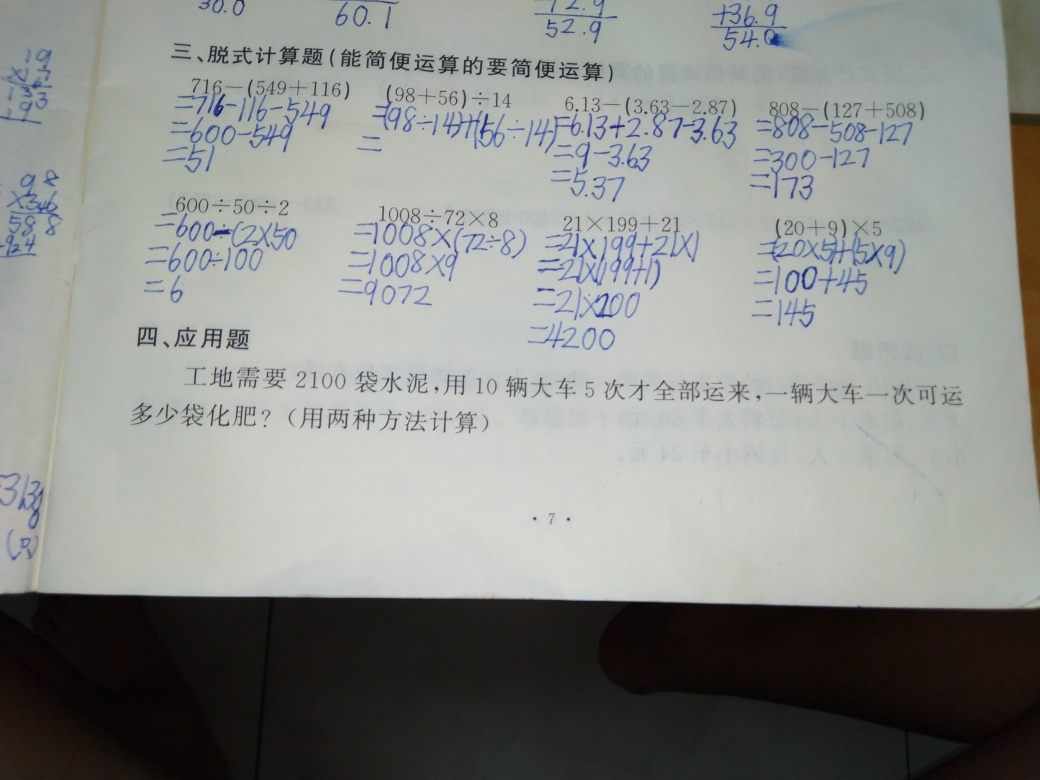 30.0
60.1
12.9
52.9
+36.9
54.0
三、脱式计算题(能简便运算的要简便运算)
716-(549+116)
=716-116-549
=600-549
=51
(98+56)÷14
=(98÷14)+(56÷14)
=
6.13-(3.63-2.87)
=6.13+2.87-3.63
=9-3.63
=5.37
808-(127+508)
=808-508-127
=300-127
=173
600÷50÷2
=600÷(2×50
=600÷100
=6
1008÷72×8
=1008×(72÷8)
=1008×9
=9072
21×199+21
=21×199+21×1
=21×(199+1)
=21×200
=4200
(20+9)×5
=(20×5)+(5×9)
=100+45
=145
四、应用题
工地需要2100袋水泥,用10辆大车5次才全部运来,一辆大车一次可运
多少袋化肥?(用两种方法计算)
·7·
98
×36
588